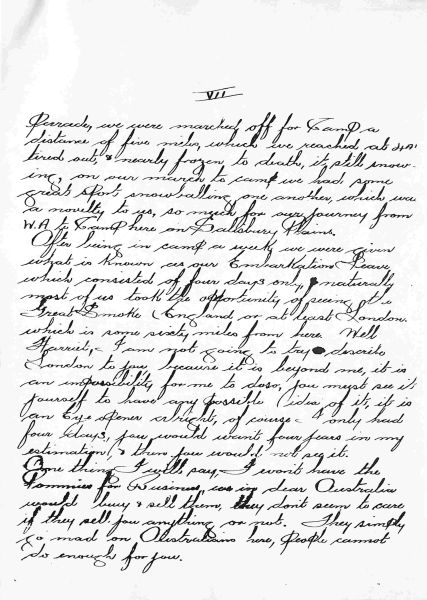 VII
Parade, we were marched off for Camp a
distance of five miles, which we reached at 4 AM
tired out, & nearly frozen to death, it, still snow-
ing, on our march to camp we had some
great sport snowballing one another, which was
a novelty to us, so much for our journey from
W.A to Camp here on Sallsbury Plains.
After being in camp a week we were given
what is known, as our Embarkation Leave
which consisted of four days only, & naturally
most of us took the opportunity of seeing the
Great Smoke England or at least London.
which is some sixty miles from here. Well
Harriet,- I am not going to try describe
London to you because it is beyond me, it is
an impossibility for me to doso, you must see it
yourself to have any possible idea of it, it is
an Eye opener alright, of course I only had
four days, you would want four years in my
estimation, & then you would not see it.
One thing I will say, I won't have the
Tommies for Business, us in dear Australia
would buy & sell them, they dont seem to care
if they sell you anything or not. They simply
go mad on Australians here, people cannot
do enough for you.